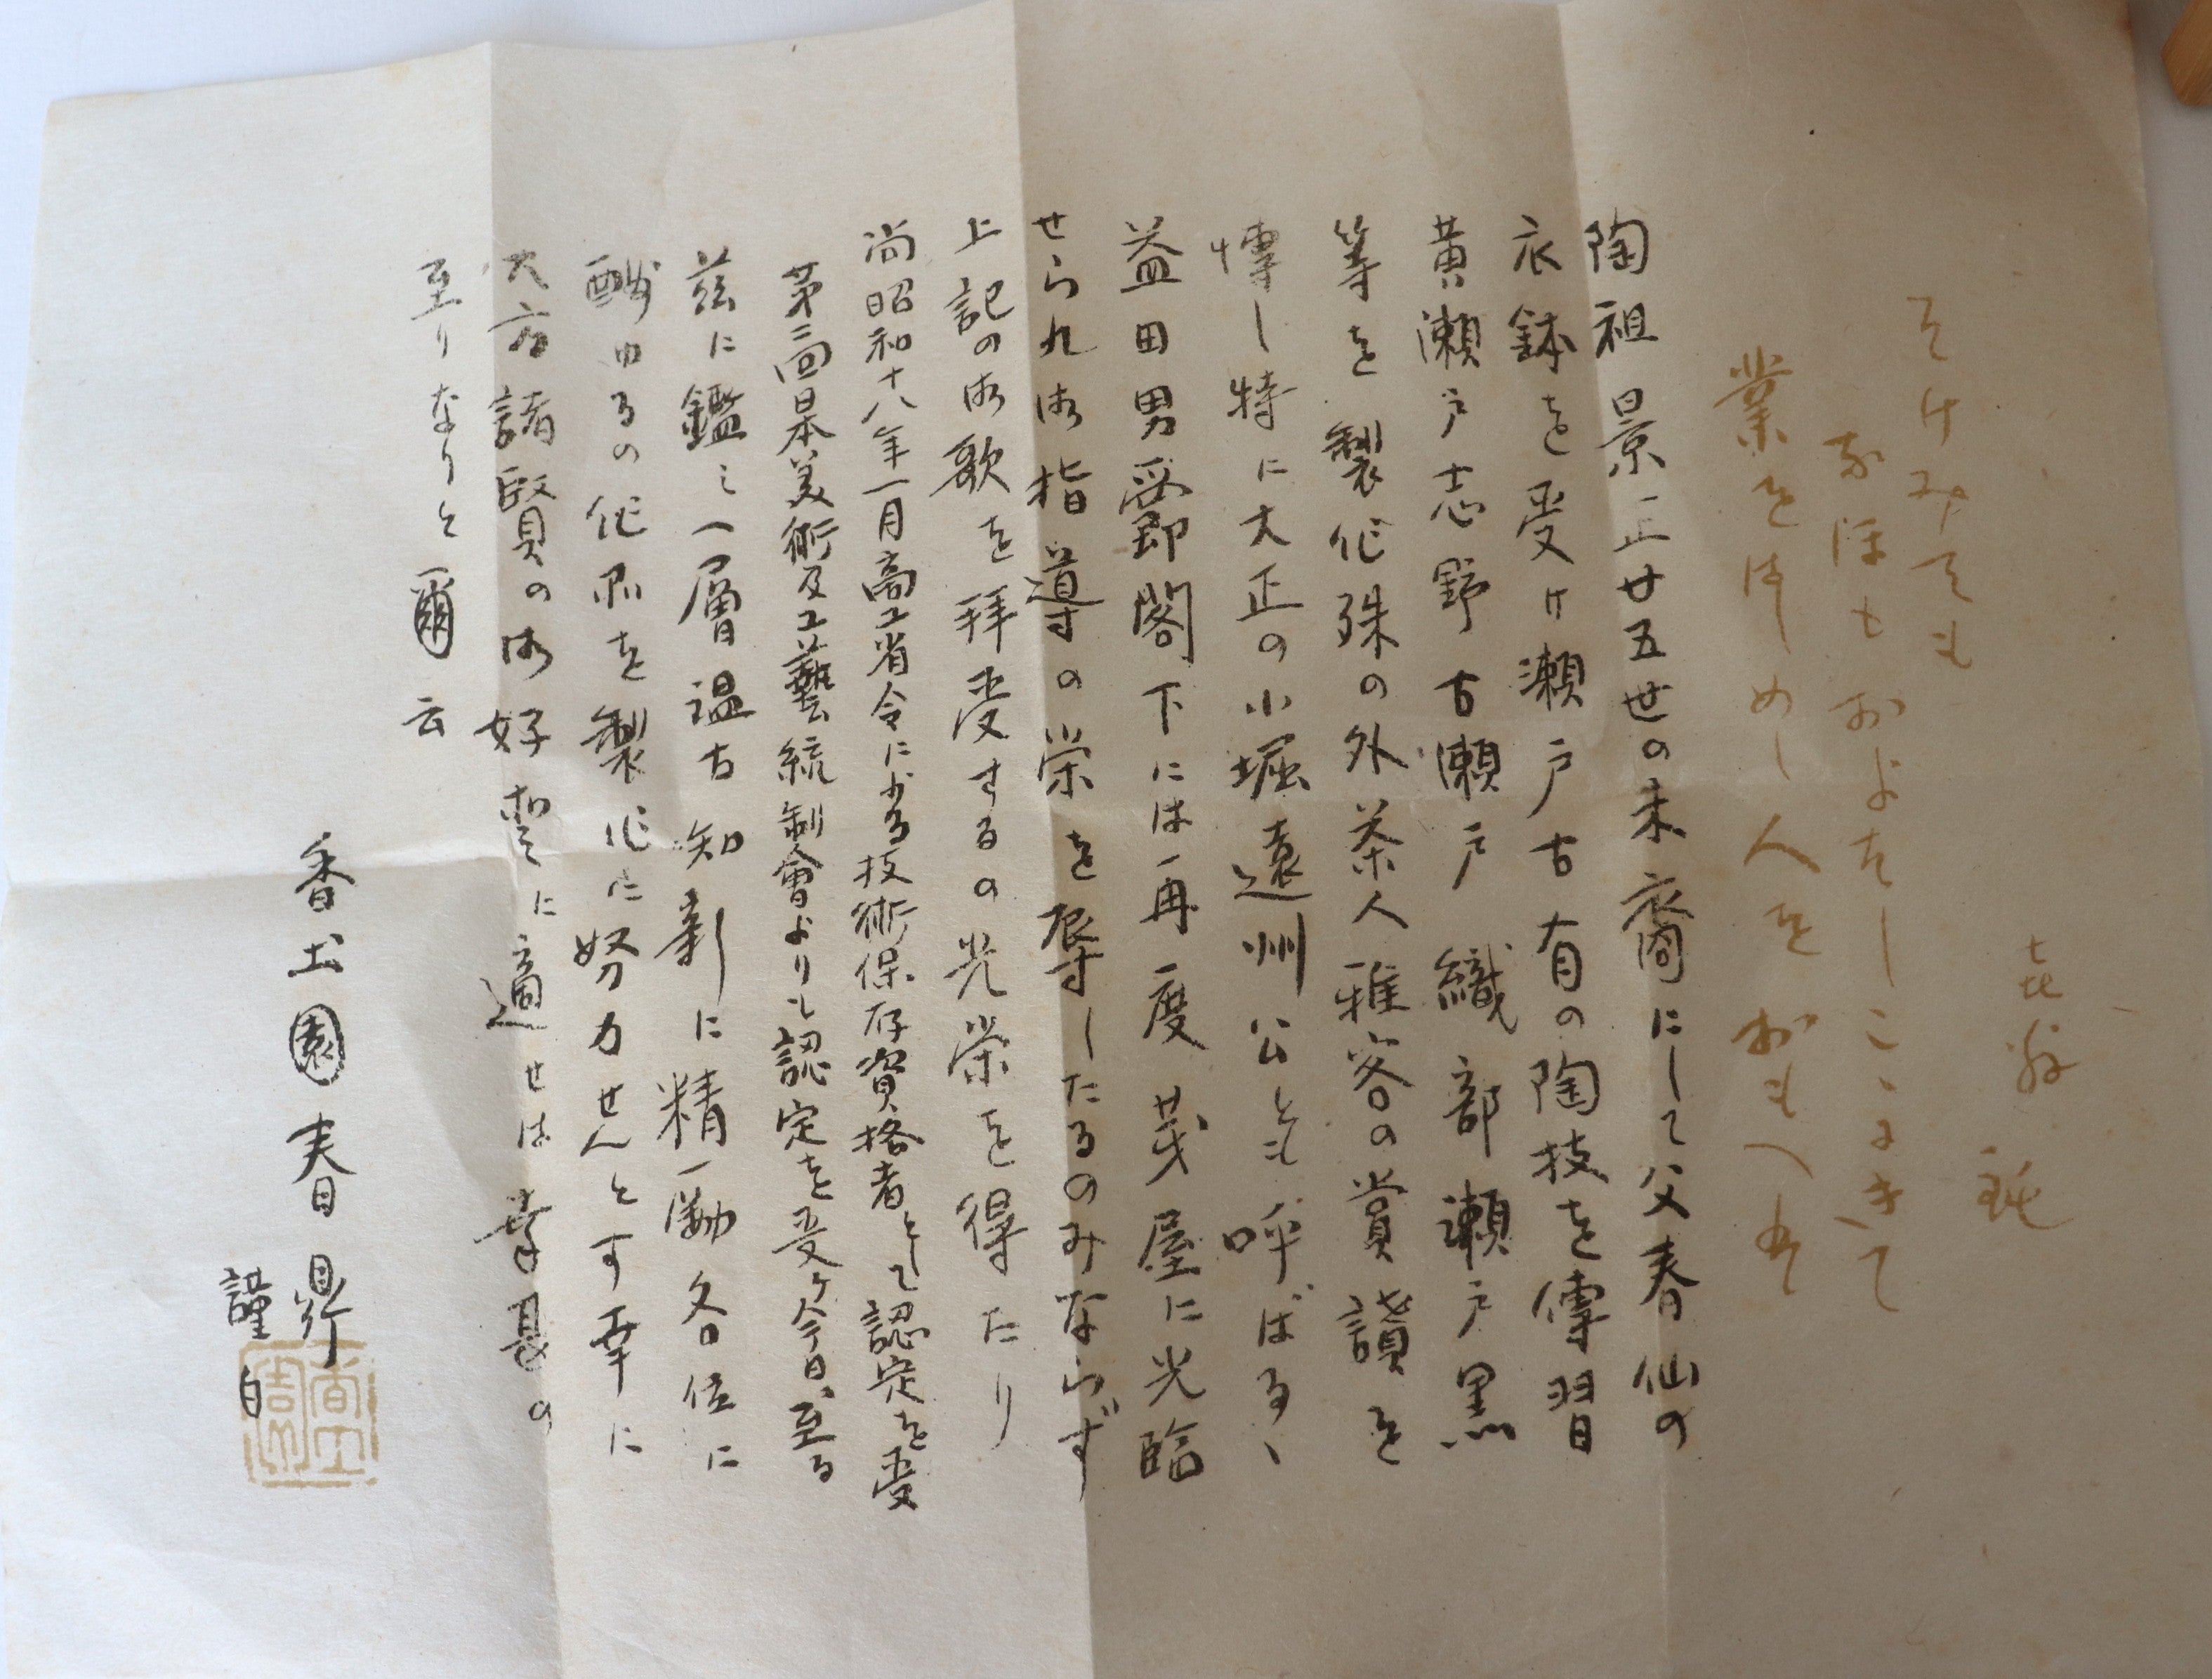 そけみても
なほもおよそしこゝまて
業をはしめし人をおもへは
鈍
陶祖景正廿五世の末裔にして父春仙の
衣鉢を受け瀬戸古有の陶技を傳習
黄瀬戸志野古瀬戸織部瀬戸黒
等を製作殊の外茶人雅客の賞讃を
博し特に大正の小堀遠州公とも呼ばるゝ
益田男爵閣下には再度茅屋に光臨
せられ御指導の栄を辱したるのみならず
上記の御歌を拝受するの光栄を得たり
尚昭和十八年一月商工省令に依る技術保存資格者として認定を受
第三回日本美術及工藝統制會よりも認定を受ケ今日に至る
茲に鑑ミ一層温古知新に精励各位に
酬ゆるの作品を製作に努力せんとす幸に
大方諸賢の御好評に適せは幸甚の
至りなりと爾云
香土園春鼎
謹白